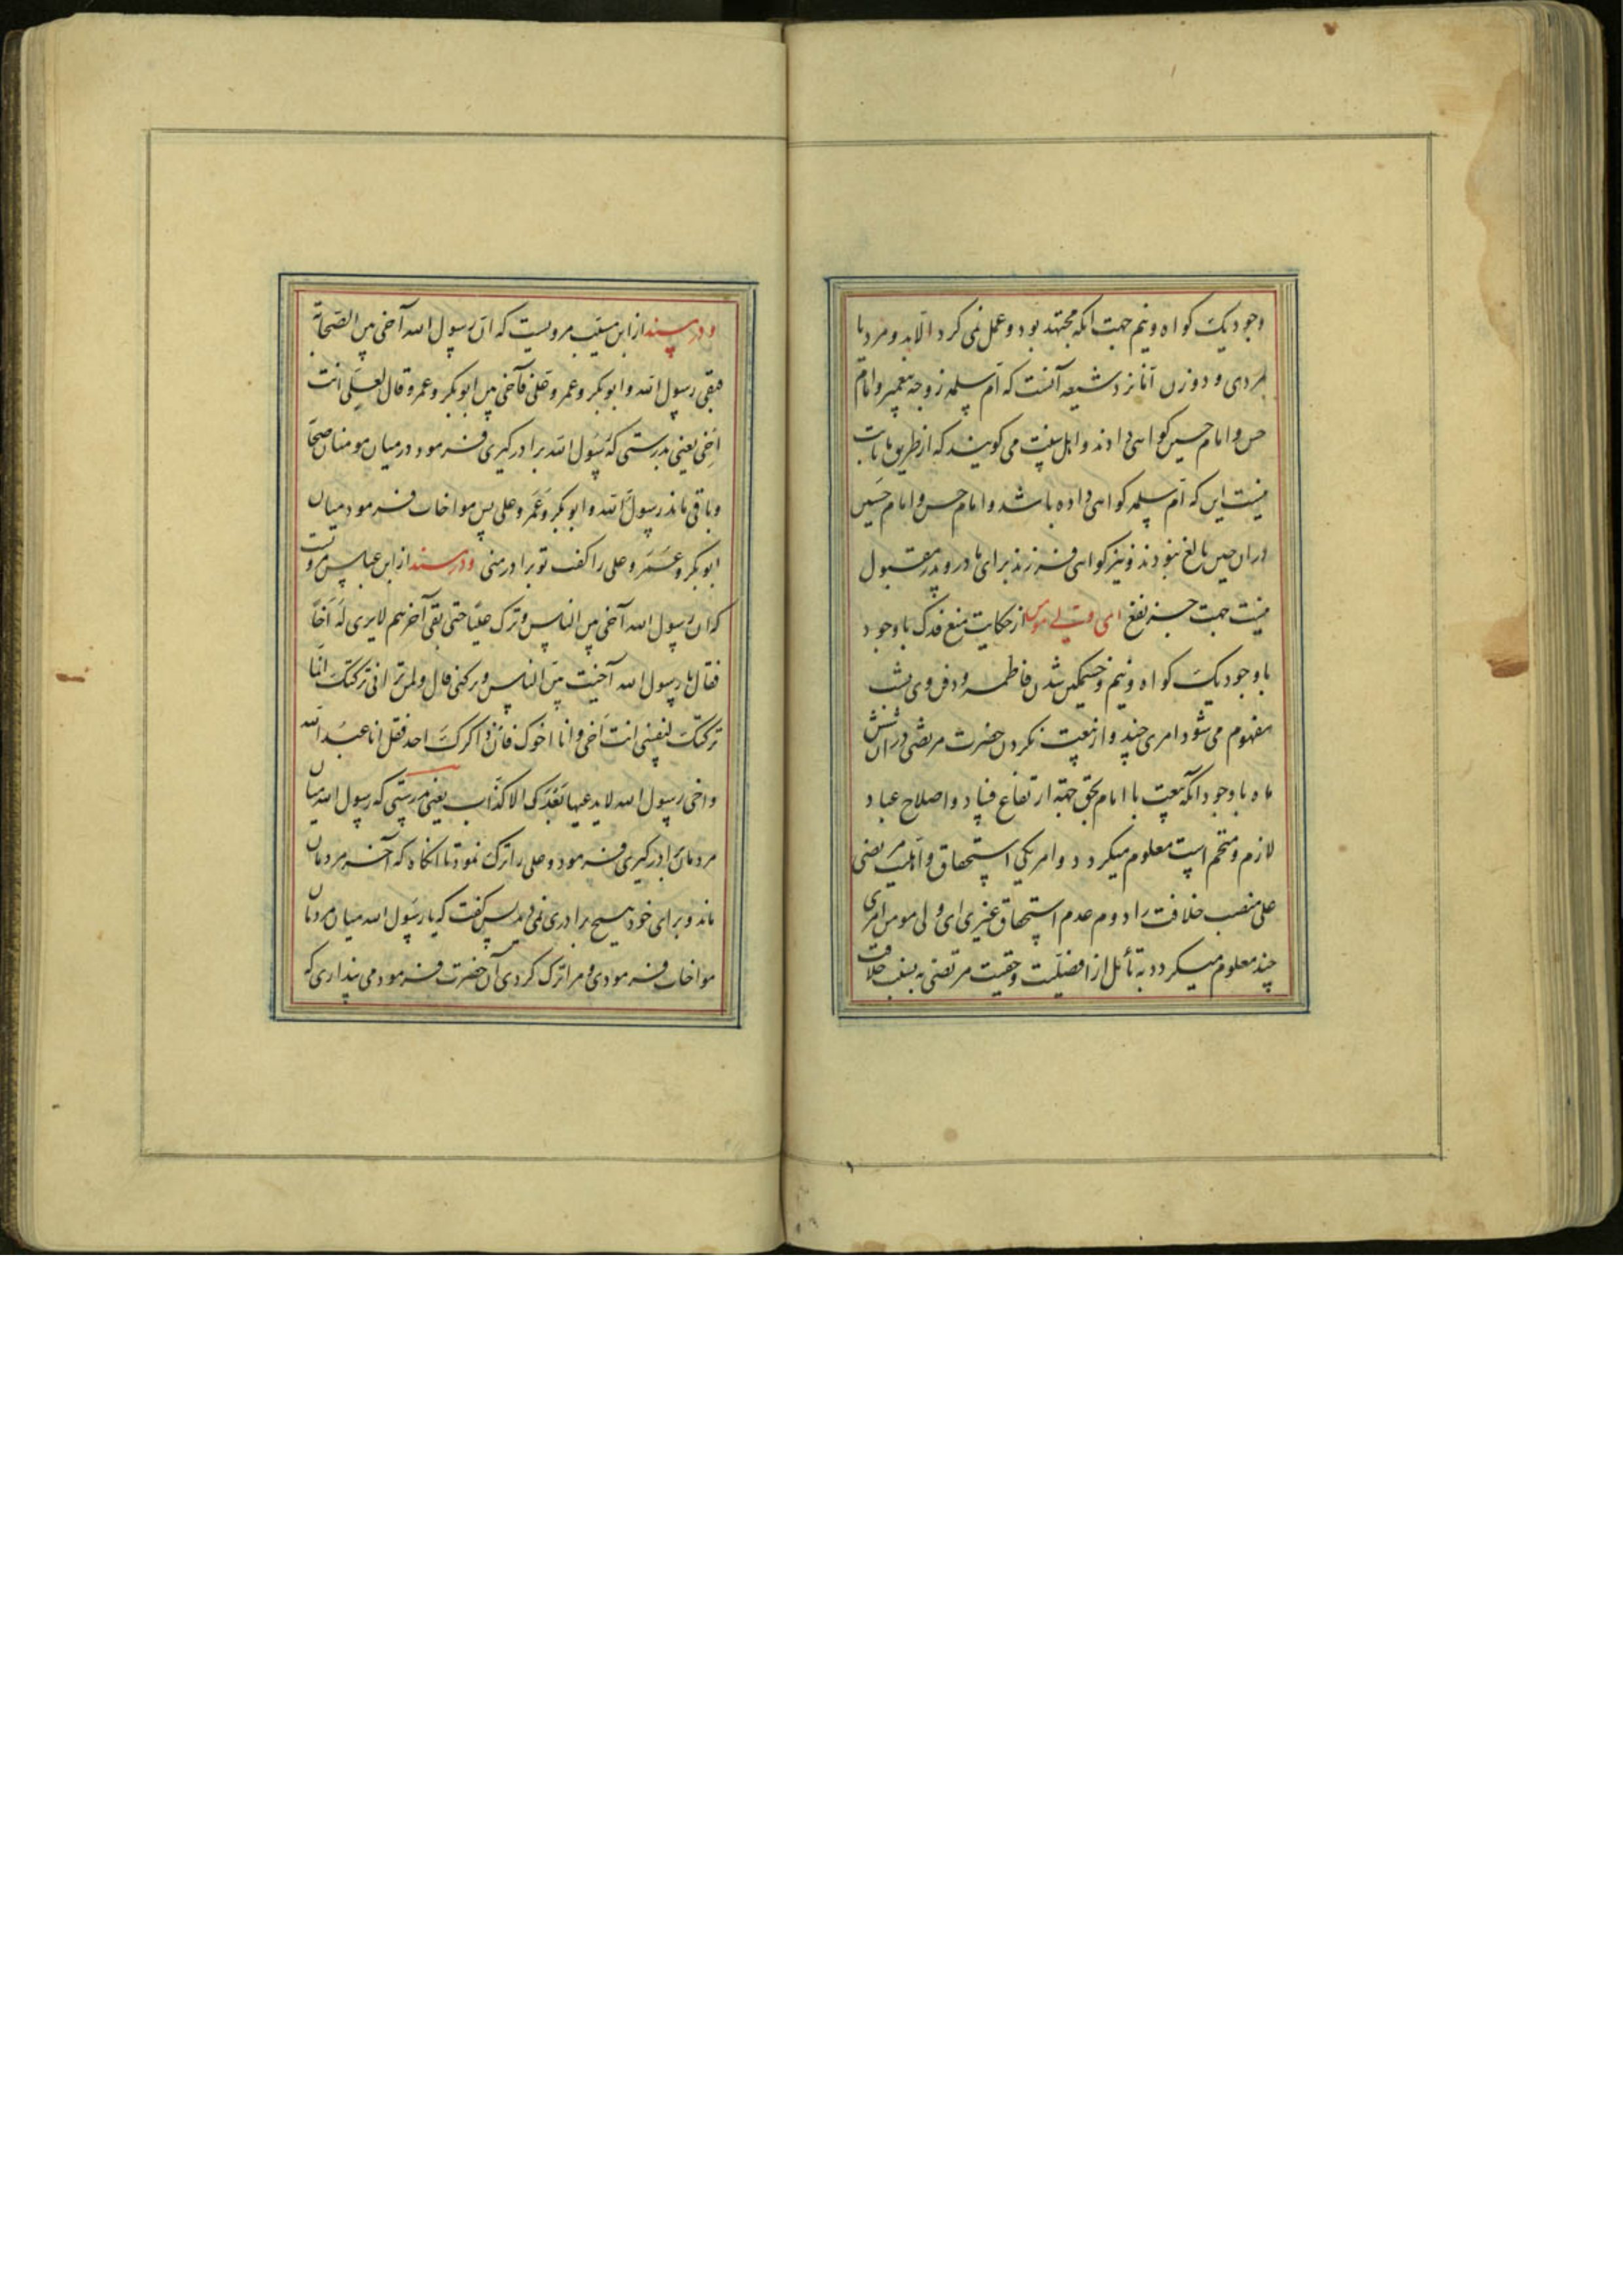 وجود یک گواه و نیم جهت آنکه مجتهد بود و عمل نمی کرد الا بدو مرد یا
مردی و دو زن اما نزد شیعه آنست که ام سلمه زوجه پیغمبر و امام
حسن و امام حسین گواهی دادند و اهل سنت می گویند که از طریق ما ثابت
نیست این که ام سلمه گواهی داده باشد و امام حسن و امام حسین
در ان حین بالغ نبودند و نیز گواهی فرزند برای مادر و پدر مقبول
نیست جهت جر نفع ای ولی مومن از حکایت منع فدک با وجود
با وجود یک گواه و نیم و خشمگین شدن فاطمه و دفن وی بشب
مفهوم می شود امری چند و از بیعت نکردن حضرت مرتضی در ان شش
ماه با وجود آنکه بیعت با امام بحق جهة ارتفاع فساد و اصلاح عباد
لازم و متحتم است معلوم میکردد و امر یکی استحقاق و اهلیت مرتضی
علی منصب خلافت را دوم عدم استحقاق غیری ای ولی مومن امری
چند معلوم میکردد به تأمل از افضلیت و حقیت مرتضی به منصب خلافت
و در سند از ابن مسیب مرویست که ان رسول الله آخی بین الصحابة
فبقی رسول الله و ابو بکر و عمر و علی فآخی بین ابو بکر و عمر و قال لعلی انت
اخی یعنی بدرستی که رسول الله برادر کیری فرمود در میان مومنان صحابه
و باقی ماند رسول الله و ابو بکر و عمر و علی پس مواخات فرمود میان
ابو بکر و عمر و علی را گفت تو برادر منی و در سند از ابن عباس مرویست
که ان رسول الله آخی بین الناس و ترک علیا حتی بقی آخرهم لا یری له اخا
فقال یا رسول الله آخیت بین الناس و ترکتنی قال و لم ترانی ترکتک انما
ترکتک لنفسی انت اخی و انا اخوک فان ذاکرک احد فقل انا عبد الله
و اخی رسول الله لا یدعیها بعدک الا کذاب یعنی بدرستی که رسول الله میان
مردمان برادر کیری فرمود و علی را ترک نمود تا انکاه که آخر مردمان
ماند و برای خود هیچ برادری نمی دید پس گفت که یا رسول الله میان مردمان
مواخات فرمودی و مرا ترک کردی آن حضرت فرمود می پنداری که